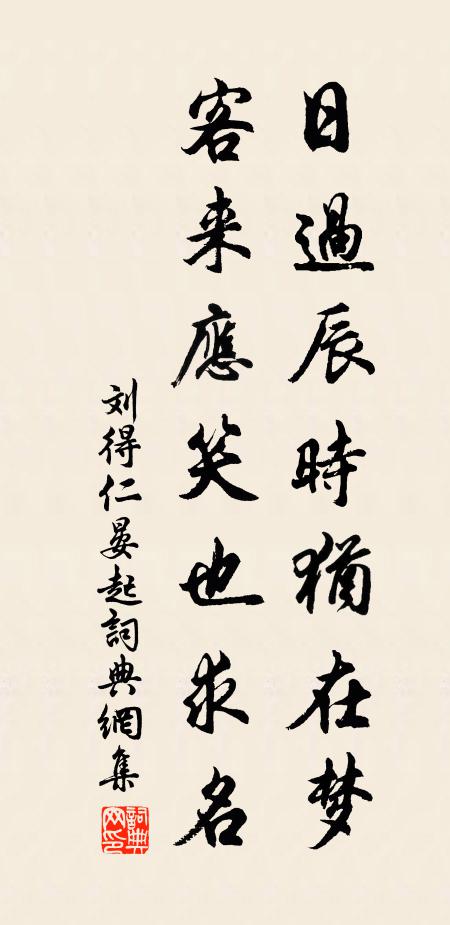 日過辰時猶在梦
客来應笑也求名
刘得仁晏起詞典網集
詞典
网印